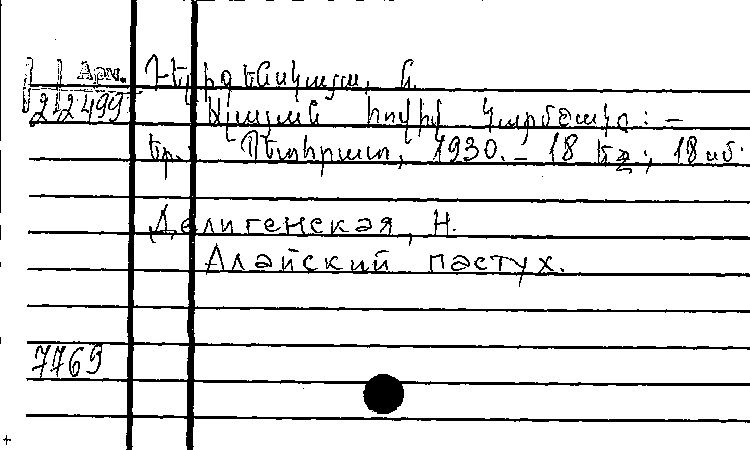 Арм.
2/2499
Դելիգենսկայա, Ն.
Ալայան հովիվ
եր., Պետհրատ, 1930. – 18 էջ; 18սմ.
Делигенская, Н.
Алайский пастух.
7769